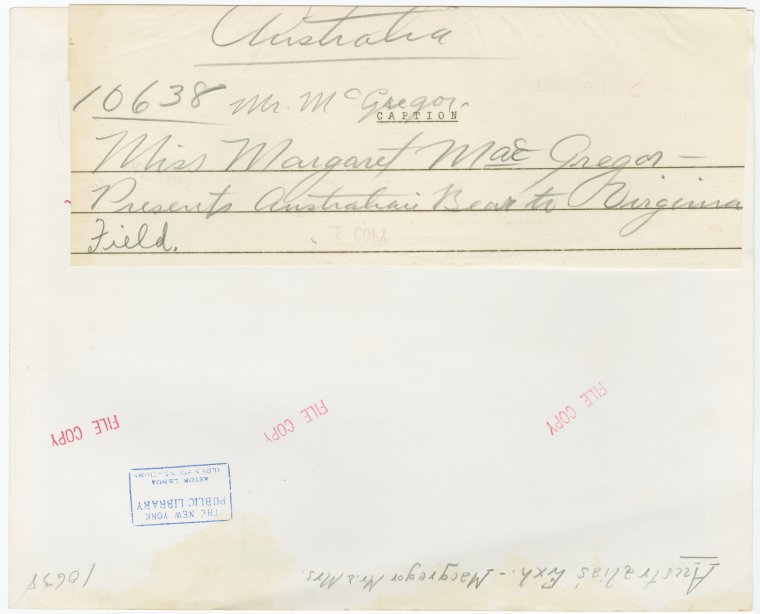 Australia
10638 Mr. McGregor.
CAPTION
Miss Margaret MacGregor -
Presents Australian Bear to Virginia
Field.
FILE COPY
E COPY
FILE COPY
FILE COPY
FILE COPY
THE NEW YORK
PUBLIC LIBRARY
ASTOR LENOX
TILDEN FOUNDATIONS
Australia's Exh. - Macgregor Mr. & Mrs.
10638